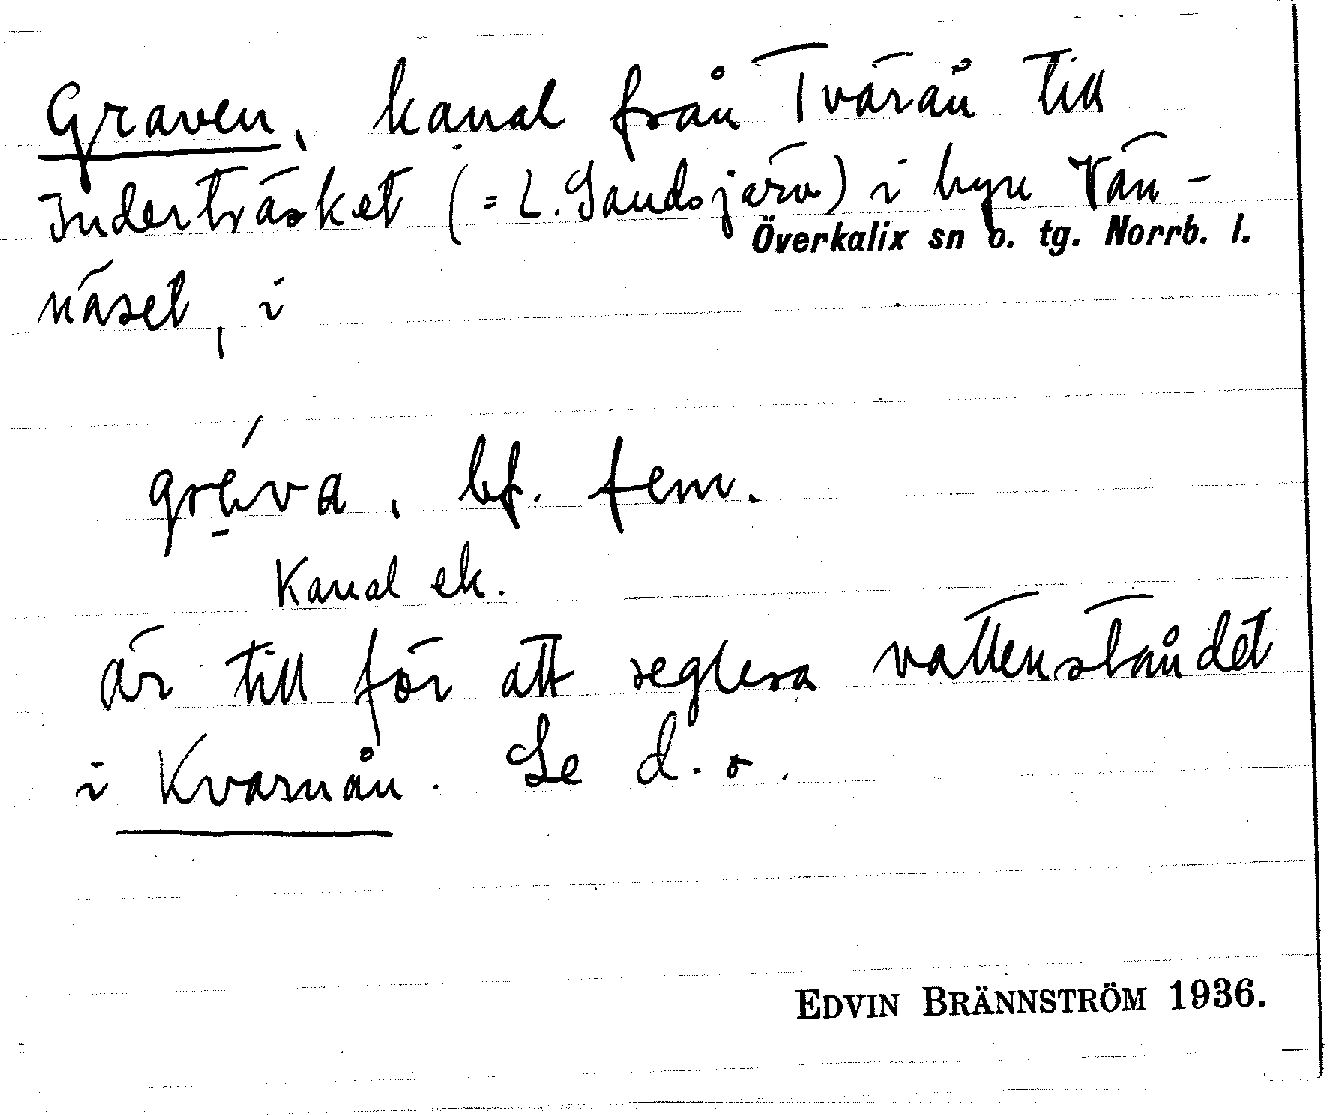 Graven, kanal från Tvärån till
Inderträsket (= L. Sandsjärv) i byn Vän-
Överkalix sn o. tg. Norrb. l.
näset, i
bf. fem.
Kanal ek.
är till för att reglera vattenståndet
i Kvarnån. Se d. o.
EDVIN BRÄNNSTRÖM 1936.